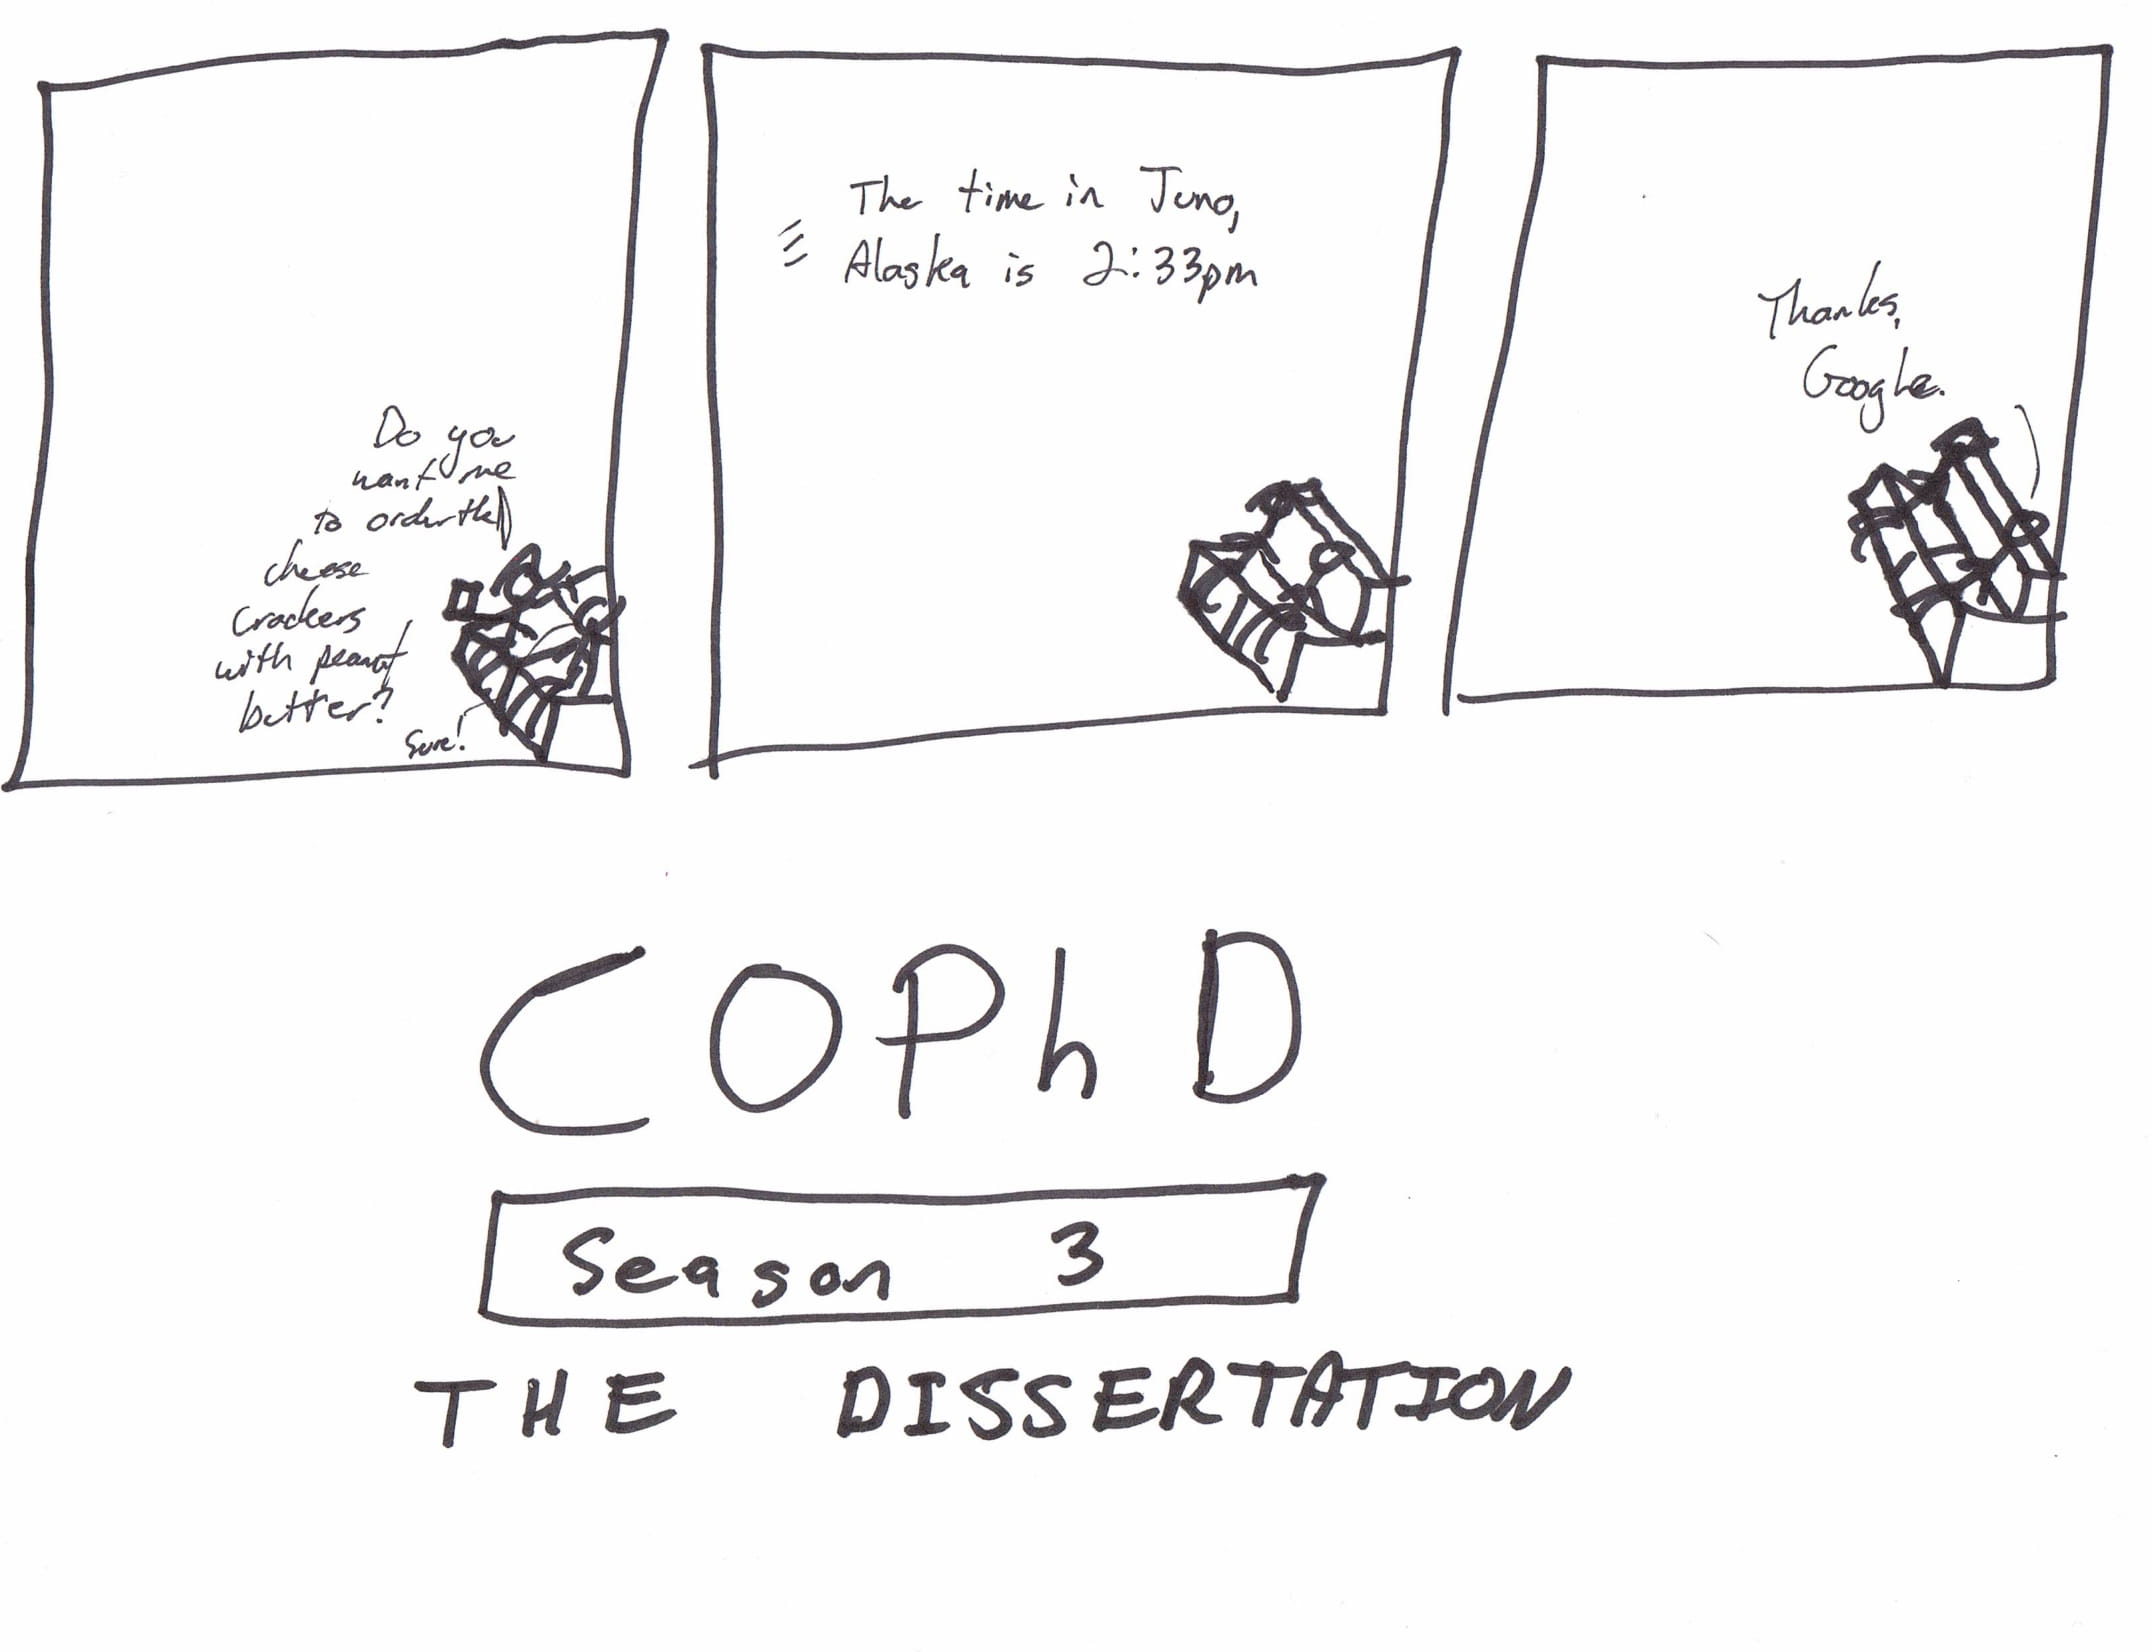 Do you
want me
to order the
cheese
crackers
with peanut
butter?
Sure!
The time in Juno,
Alaska is 2:33pm
Thanks,
Google.
COPhD
Season 3
THE DISSERTATION